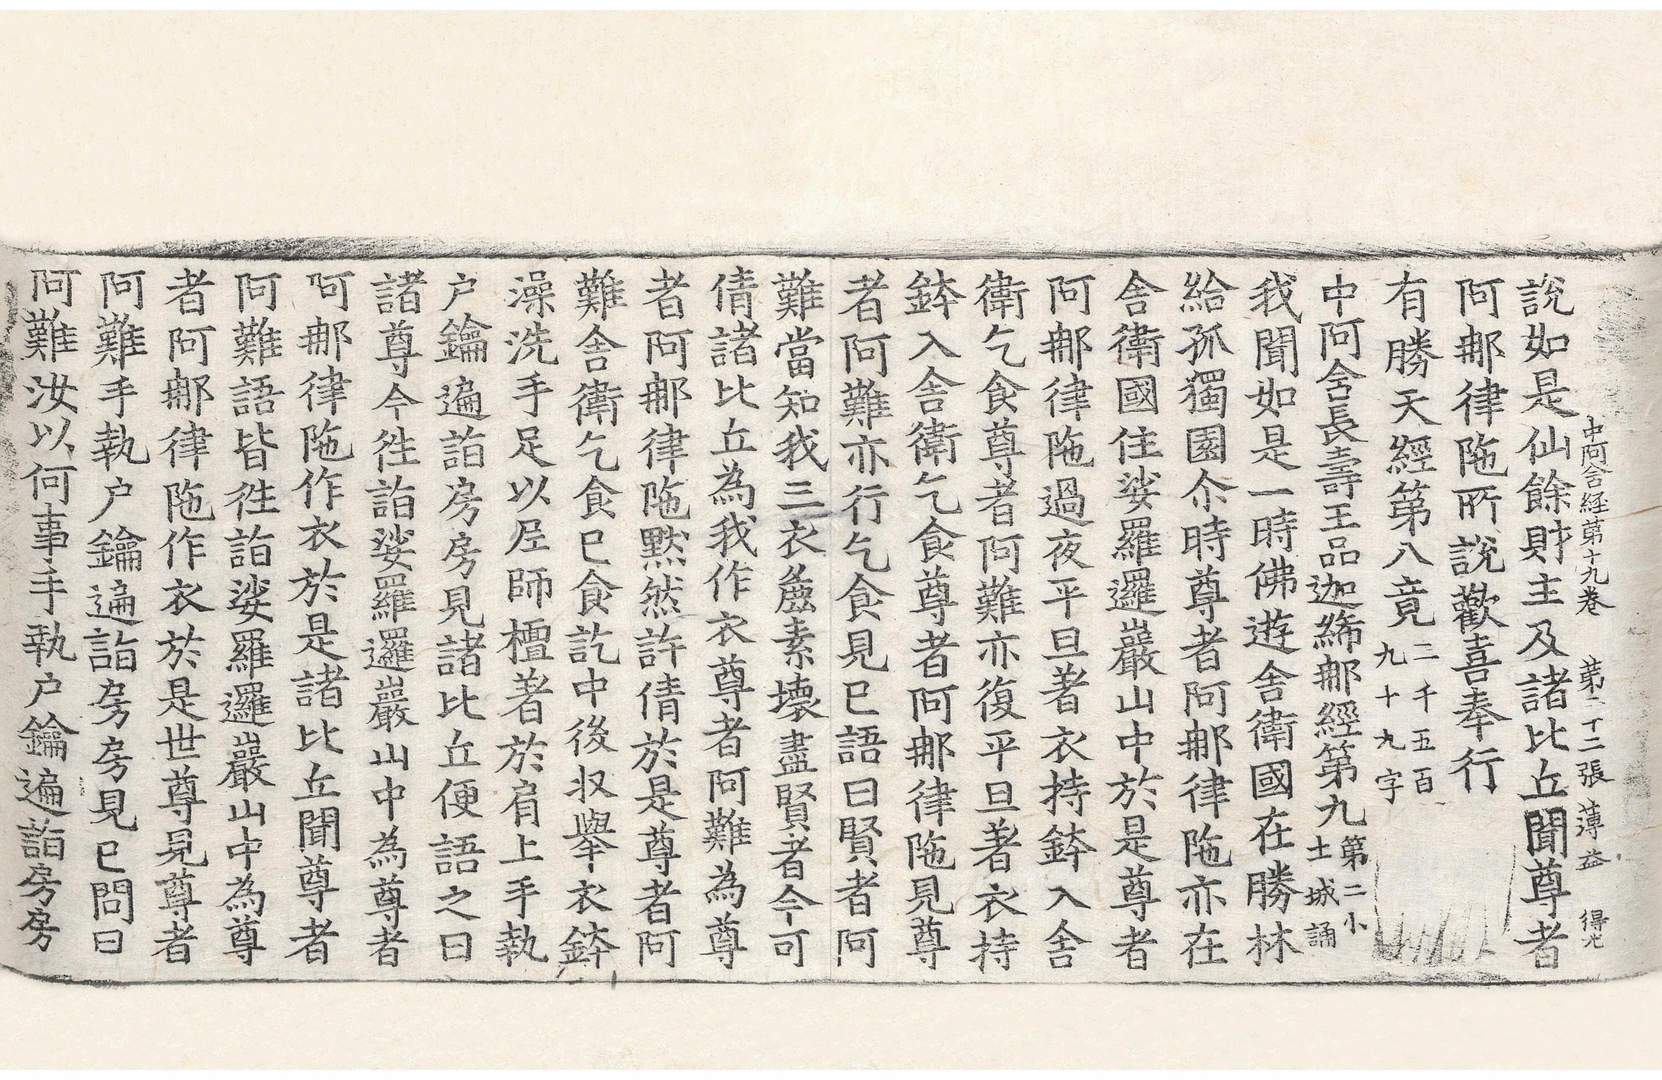 中阿含経苐十九卷 苐二十二張 薄益 得光
說如是仙餘財主及諸比丘聞尊者
阿䣯律陁所說歡喜奉行
有勝天經第八竟 二千五百九十九字
中阿含長壽王品迦絺䣯經第九 第二小土城誦
我聞如是一時佛遊舍衛國在勝林
給孤獨園尒時尊者阿䣯律陁亦在
舍衛國住娑羅邏巖山中於是尊者
阿䣯律陁過夜平旦著衣持鉢入舍
衛乞食尊者阿難亦復平旦著衣持
鉢入舍衛乞食尊者阿䣯律陁見尊
者阿難亦行乞食見已語曰賢者阿
難當知我三衣麁素壞盡賢者今可
倩諸比丘為我作衣尊者阿難為尊
者阿䣯律陁默然許倩於是尊者阿
難舍衛乞食已食訖中後収舉衣鉢
澡洗手足以尼師檀著於肩上手執
户鑰遍詣房房見諸比丘便語之曰
諸尊今往詣娑羅邏巖山中為尊者
阿䣯律陁作衣於是諸比丘聞尊者
阿難語皆往詣娑羅邏巖山中為尊
者阿䣯律陁作衣於是世尊見尊者
阿難手執户鑰遍詣房房見已問曰
阿難汝以何事手執户鑰遍詣房房